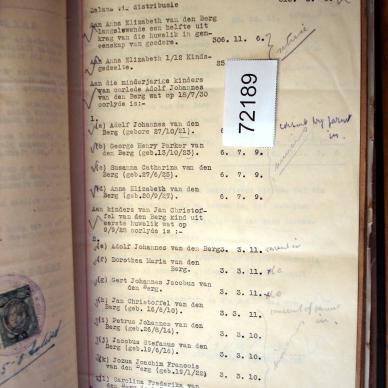 Balans vir distribusie
Aan Anna Elizabeth van den Berg
langslewende een helfte uit
krag van die huwelik in gem-
eenskap van goedere. 306.11. 6.
Aan Anna Elizabeth 1/12 Kinds-
gedeelte.
Aan die minderjarige kinders
van oorlede Adolf Johannes
van den Berg wat op 18/7/30
oorlyde is:-
1.
(a) Adolf Johannes van den
Berg (gebore 27/10/21). 6.
(b) George Henry Parker van
den Berg (geb.13/10/23). 6. 7. 9.
(c) Susanna Catharina van den
Berg (geb.27/6/25). 6. 7. 9.
(d) Anna Elizabeth van den
Berg (geb.20/9/27). 6. 7. 9.
Aan kinders van Jan Christof-
fel van den Berg kind uit
eerste huwelik wat op
9/9/28 oorlyde is :-
2.
(e) Adolf Johannes van den Berg 3. 3. 11.
(f) Dorothea Maria van den
Berg. 3. 3. 11.
(g) Gert Johannes Jacobus van
den Berg. 3. 3. 11.
(h) Jan Christoffel van den
Berg (geb. 16/6/10). 3. 3. 11.
(i) Petrus Johannes van den
Berg (geb. 26/8/14). 3. 3. 10.
(j) Jacobus Stefanus van den
Berg (geb.19/6/16). 3. 3. 10.
(k) Jozua Joachim Francois
van den Berg (geb.19/1/23) 3. 3. 10.
(l) Carolina Frederika van
72189